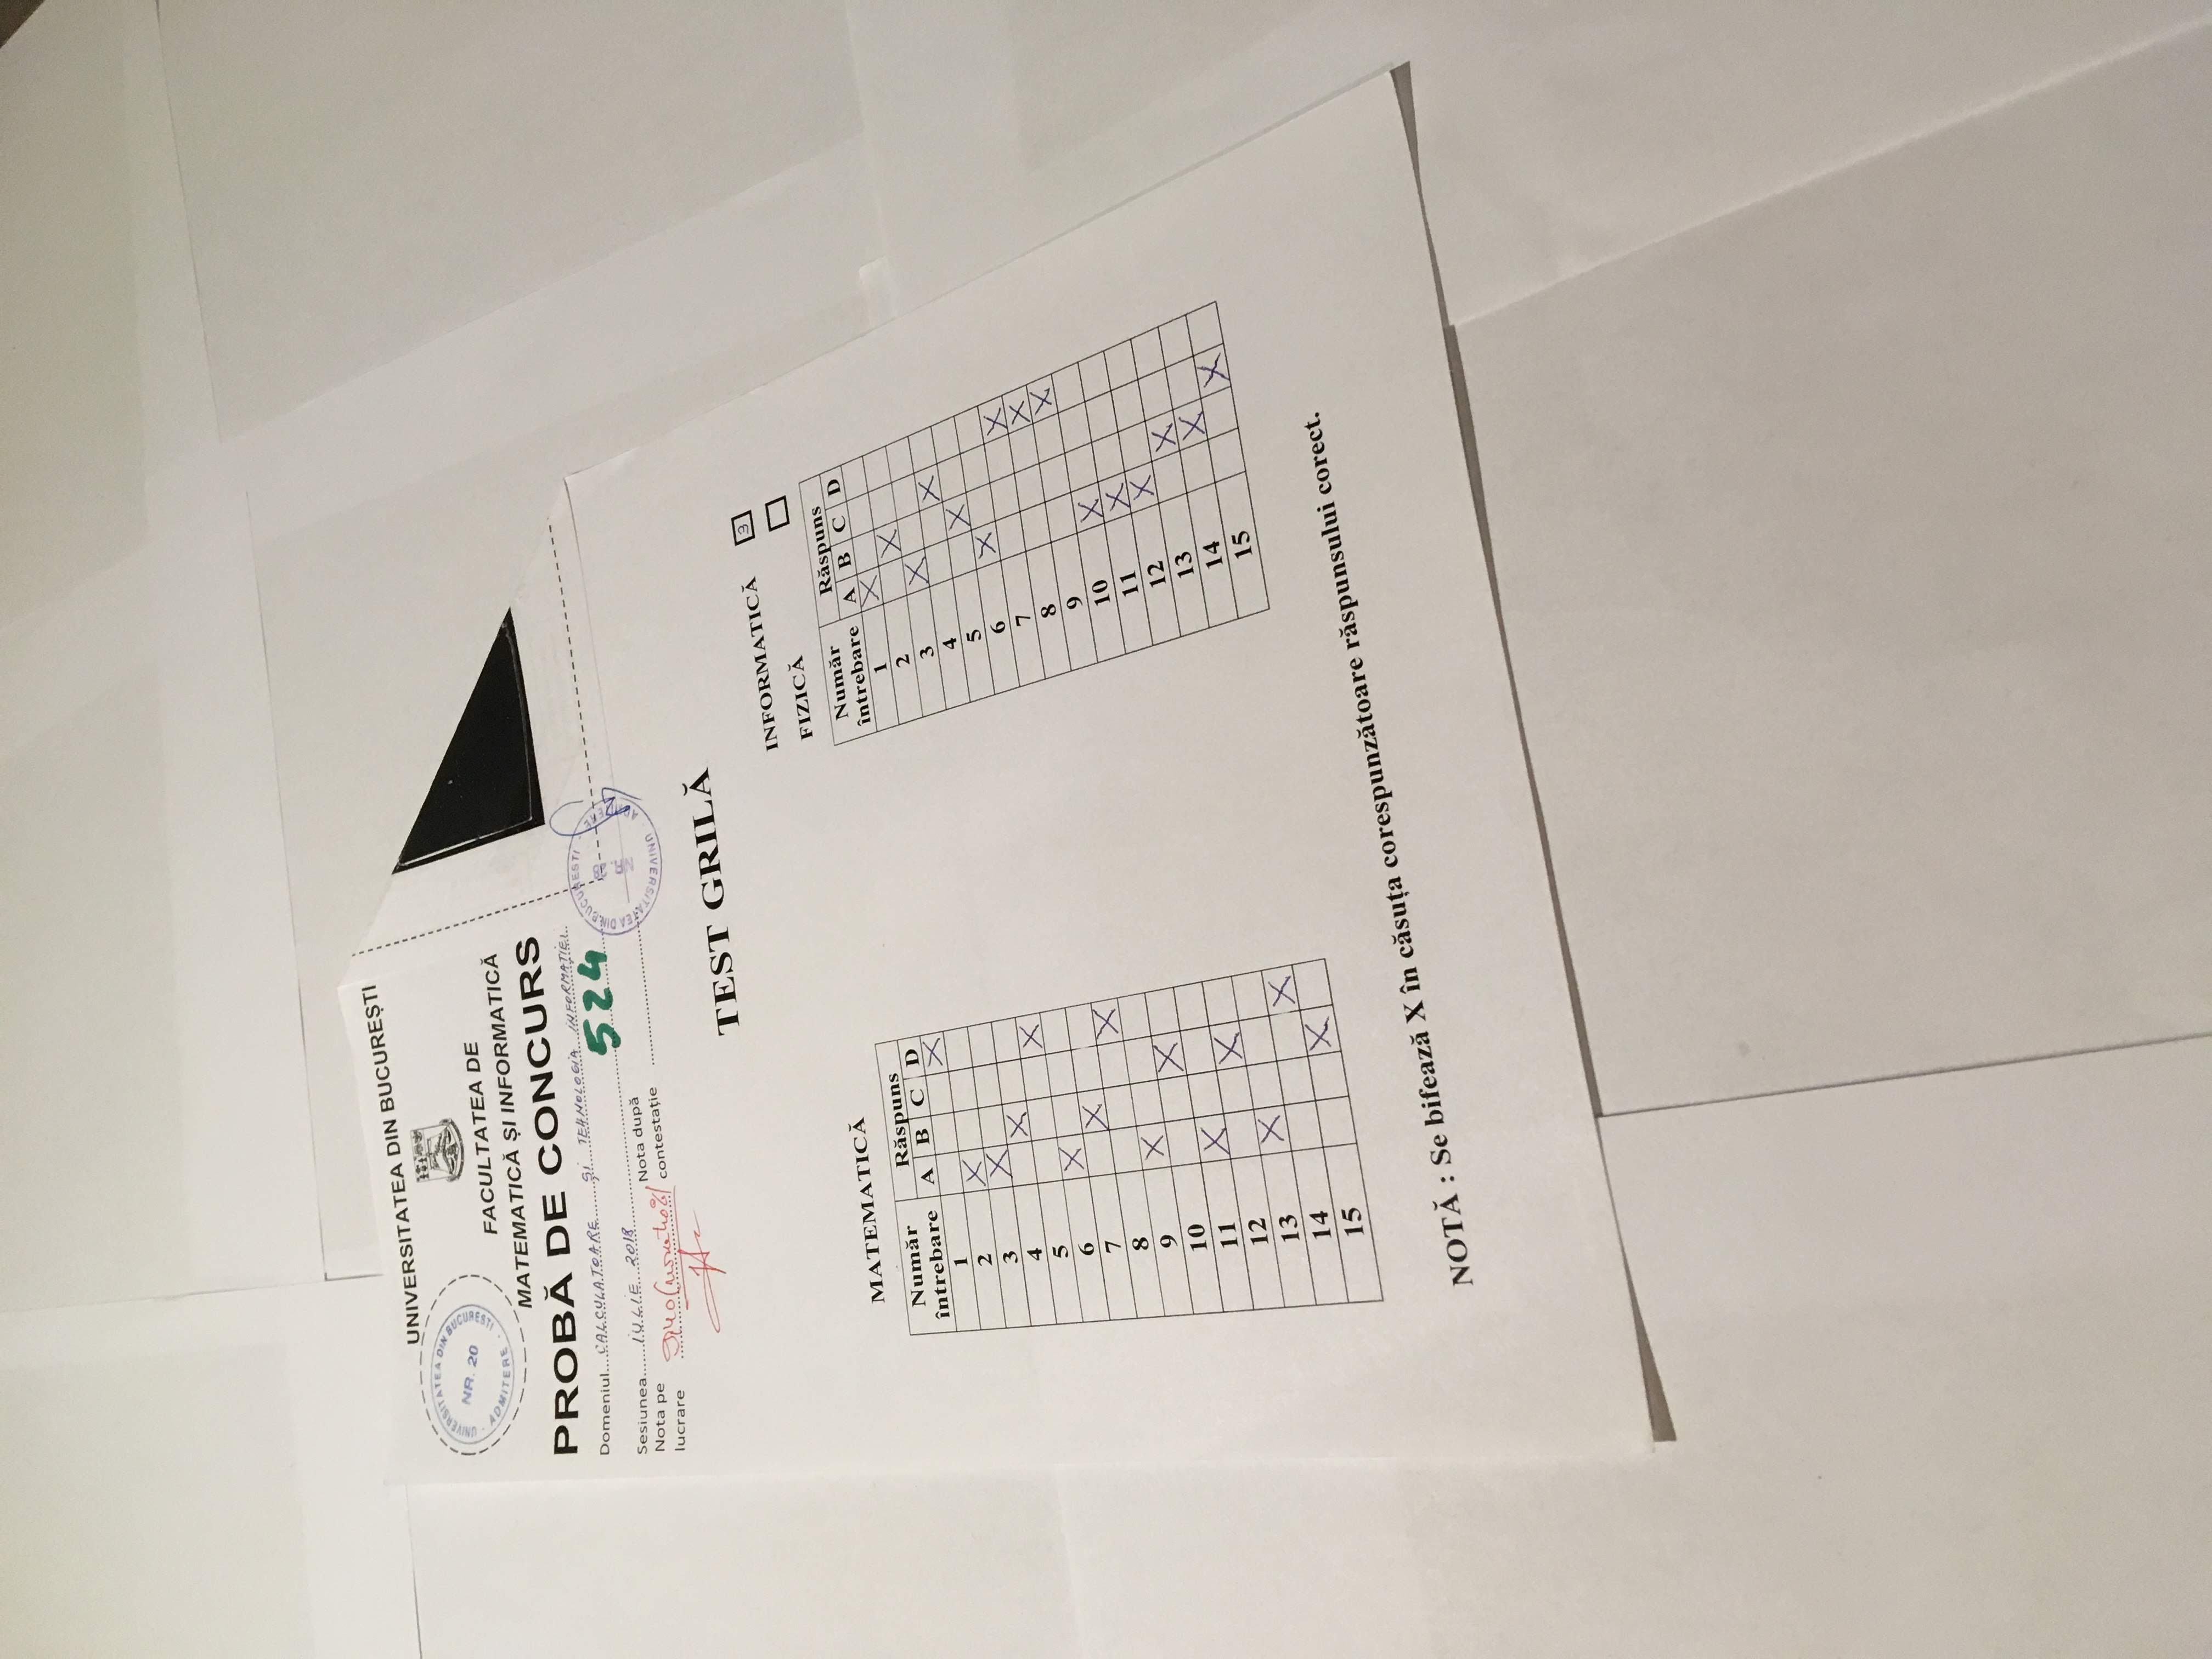 UNIVERSITATEA DIN BUCUREȘTI
UNIVERSITATEA DIN BUCUREȘTI
NR. 20
ADMITERE
FACULTATEA DE
MATEMATICĂ ȘI INFORMATICĂ
PROBĂ DE CONCURS
Domeniul CALCULATOARE ȘI TEHNOLOGIA INFORMAȚIEI
524
Sesiunea IULIE 2018
Nota pe lucrare
Nota după contestație
UNIVERSITATEA DIN BUCUREȘTI
ADMITERE
TEST GRILĂ
INFORMATICĂ 3
FIZICĂ
MATEMATICĂ
Număr întrebare Răspuns
A B C D
1 X
2 X
3 X
4 X
5 X
6 X
7 X
8 X
9 X
10 X
11 X
12 X
13 X
14 X
15 X
Număr întrebare Răspuns
A B C D
1 X
2 X
3 X
4 X
5 X
6 X
7 X
8 X
9 X
10 X
11 X
12 X
13 X
14 X
15 X
NOTĂ : Se bifează X în căsuța corespunzătoare răspunsului corect.